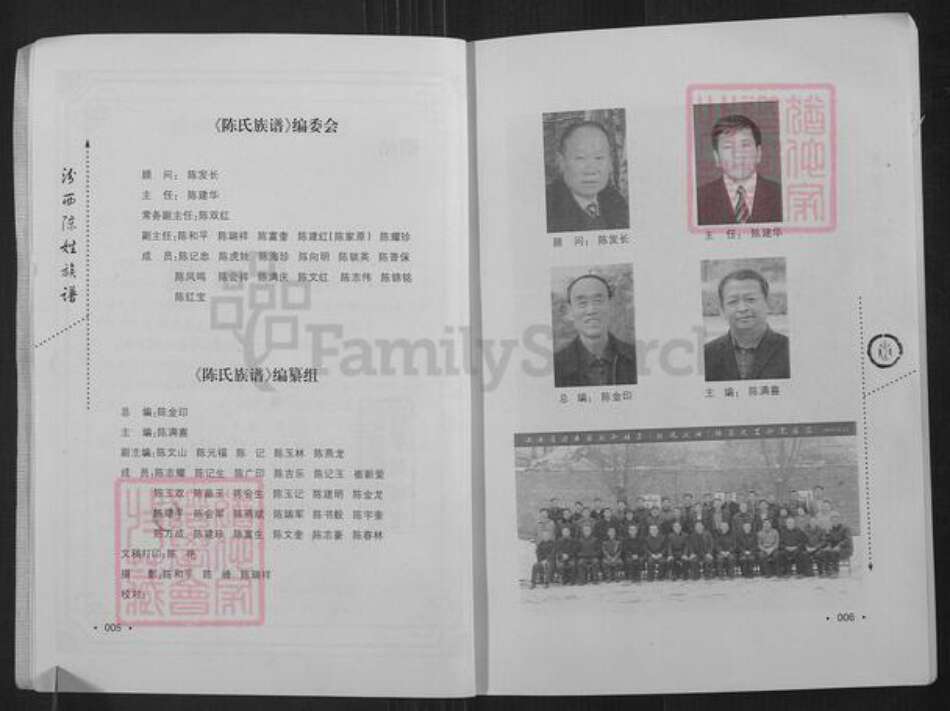 汾西陈姓族谱
《陈氏族谱》编委会
顾 问： 陈发长
主 任： 陈建华
常务副主任：陈双红
副主任：陈和平 陈瑞祥 陈富奎 陈建红（陈家原） 陈耀珍
成 员：陈记忠 陈虎娃 陈海珍 陈向明 陈毓英 陈晋保
陈凤鸣 陈会祥 陈满庆 陈文红 陈志伟 陈锦铭
陈红宝
《陈氏族谱》编纂组
总 编：陈金印
主 编：陈满喜
副主编：陈文山 陈元福 陈 记 陈玉林 陈燕龙
成 员：陈志耀 陈记生 陈广印 陈吉乐 陈记玉 崔新爱
陈玉双 陈晶玉 蒋会生 陈玉记 陈建明 陈金龙
陈建平 陈会军 陈燕斌 陈瑞军 陈书毅 陈宇奎
陈万成 陈建珍 陈富生 陈文奎 陈志豪 陈春林
文稿打印：陈 艳
摄 影：陈和平 陈 峰 陈瑞祥
校对：
· 005 ·
顾 问： 陈发长
主 任： 陈建华
总 编： 陈金印
主 编： 陈满喜
· 006 ·
FamilySearch